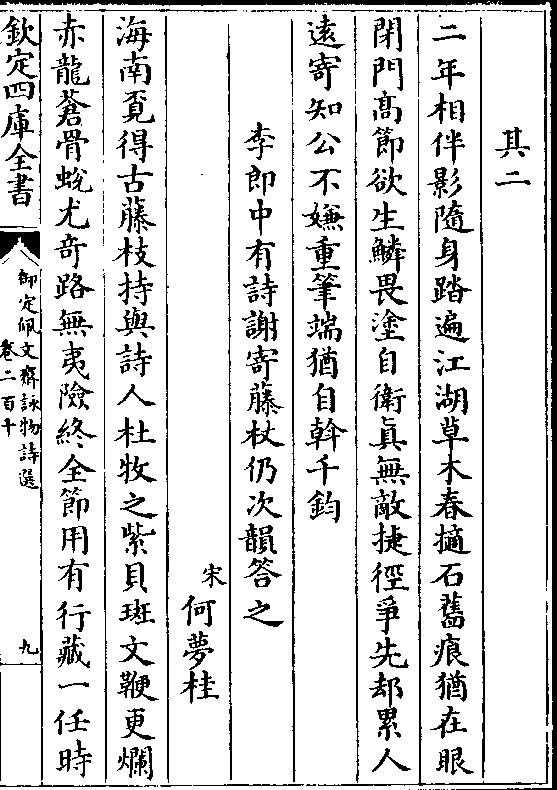 其二
二年相伴影隨身踏遍江湖草木春擿石舊痕猶在眼
閉門髙節欲生鱗畏塗自衛真無敵捷徑爭先却累人
遠寄知公不嫌重筆端猶自斡千鈞
李郎中有詩謝寄藤杖仍次韻答之
宋何夢桂
海南覔得古藤枝持與詩人杜牧之紫貝斑文鞭更爛
赤龍蒼骨蛻尤奇路無夷險終全節用有行藏一任時
欽定四庫全書
御定佩文齋詠物詩選
卷二百十
九